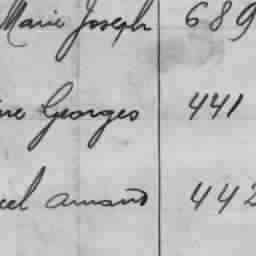 Marie Joseph 689
Georges 441
Armand 442